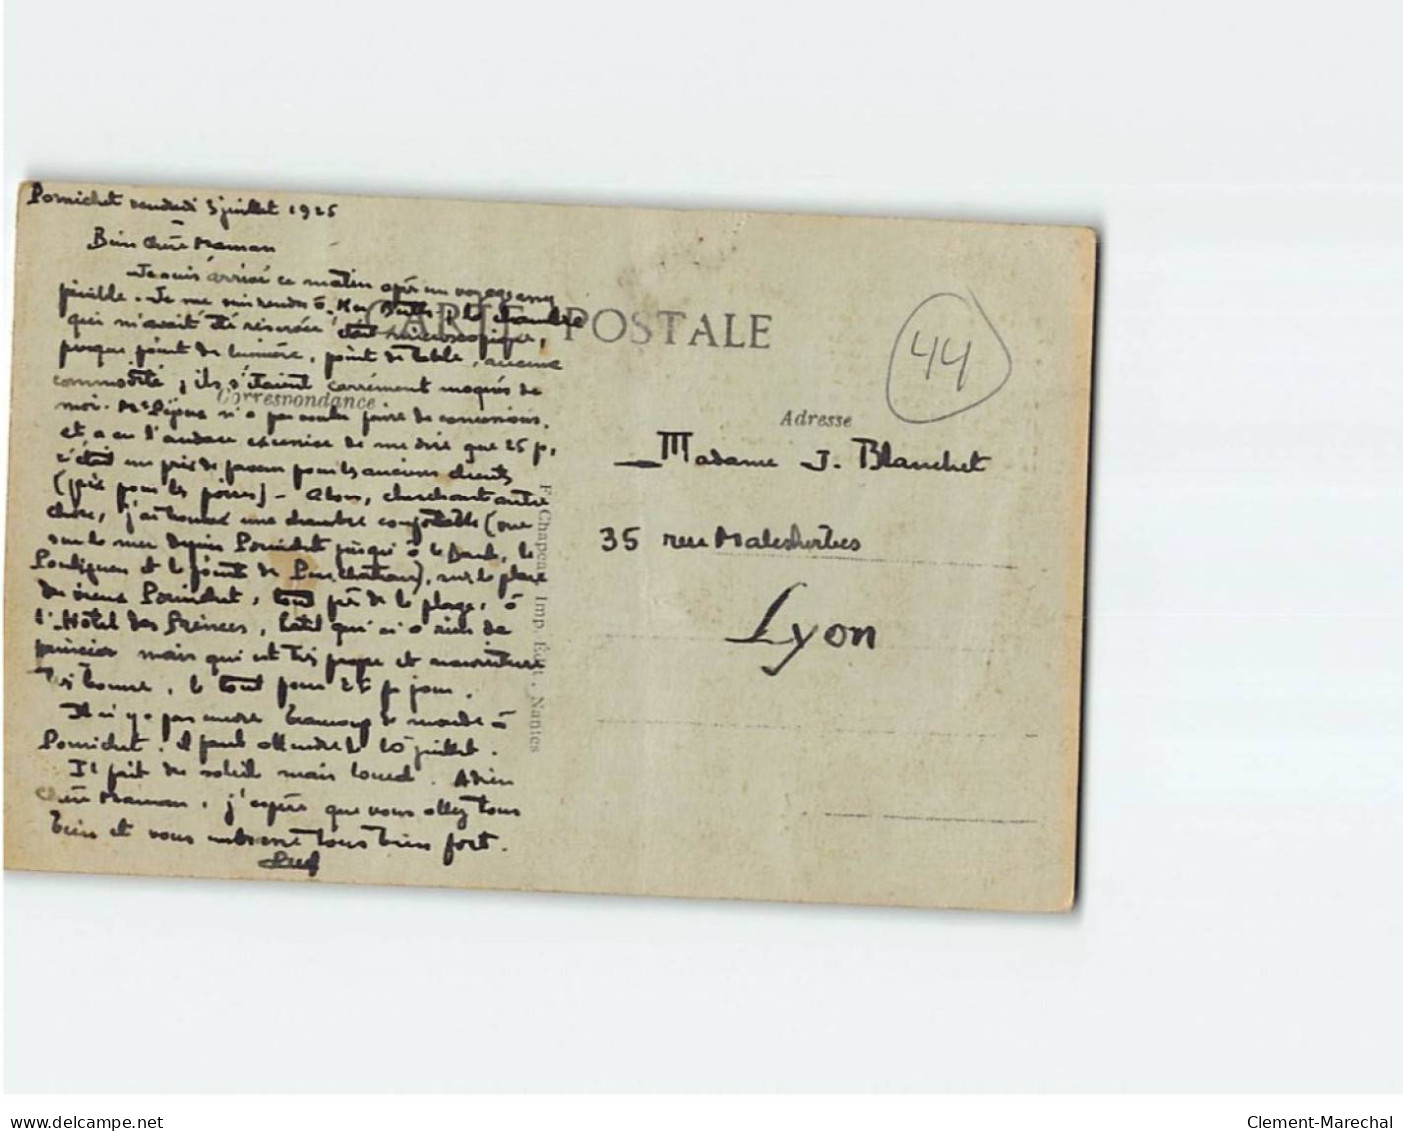 Pornichet vendredi 3 juillet 1925
Bien chère Maman
Je suis arrivé ce matin après un voyage assez
pénible. Je me suis rendu à Ker ; la chambre
qui m'avait été réservée était microscopique,
presque point de lumière, point de table, aucune
commodité, ils s'étaient carrément moqués de
moi. n'a pas voulu faire de concessions.
et a eu l'audace excessive de me dire que 25 f,
c'était un prix de faveur pour les anciens clients
(prix pour les poires) - Alors, cherchant autre
chose, j'ai trouvé une chambre confortable (vue
sur la mer depuis Pornichet jusqu'à la Baule, le
Pouliguen et la pointe de Penchâteau), sur la place
du vieux Pornichet, tout près de la plage, à
l'Hôtel des Princes, hôtel qui n'a rien de
princier mais qui est très propre et nourriture
très bonne, le tout pour 25 f p jour.
Il n'y a pas encore beaucoup de monde à
Pornichet. Il faut attendre le 10 juillet.
Il fait du soleil mais lourd. Adieu
chère Maman, j'espère que vous allez tous
bien et vous embrasse tous bien fort.
CARTE POSTALE
Correspondance
Adresse
44
Madame J. Blanchet
35 rue Malesherbes
Lyon
F. Chapeau, Imp. Édit., Nantes
www.delcampe.net
Clement-Marechal